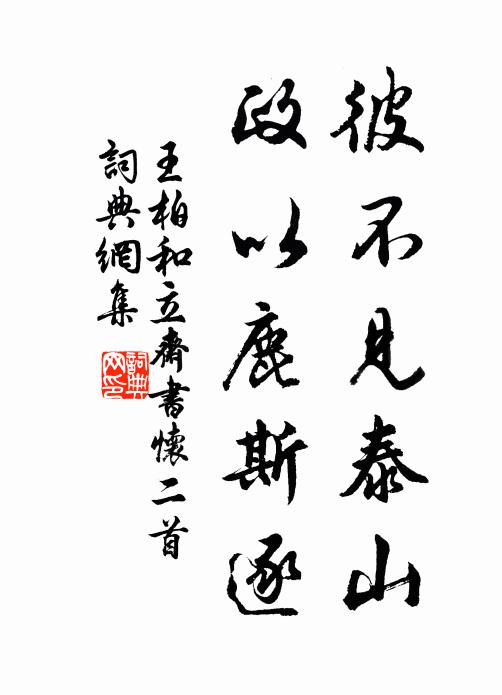 彼不見泰山
政以鹿斯逐
王柏和立齋書懷二首
詞典網集
詞典网印